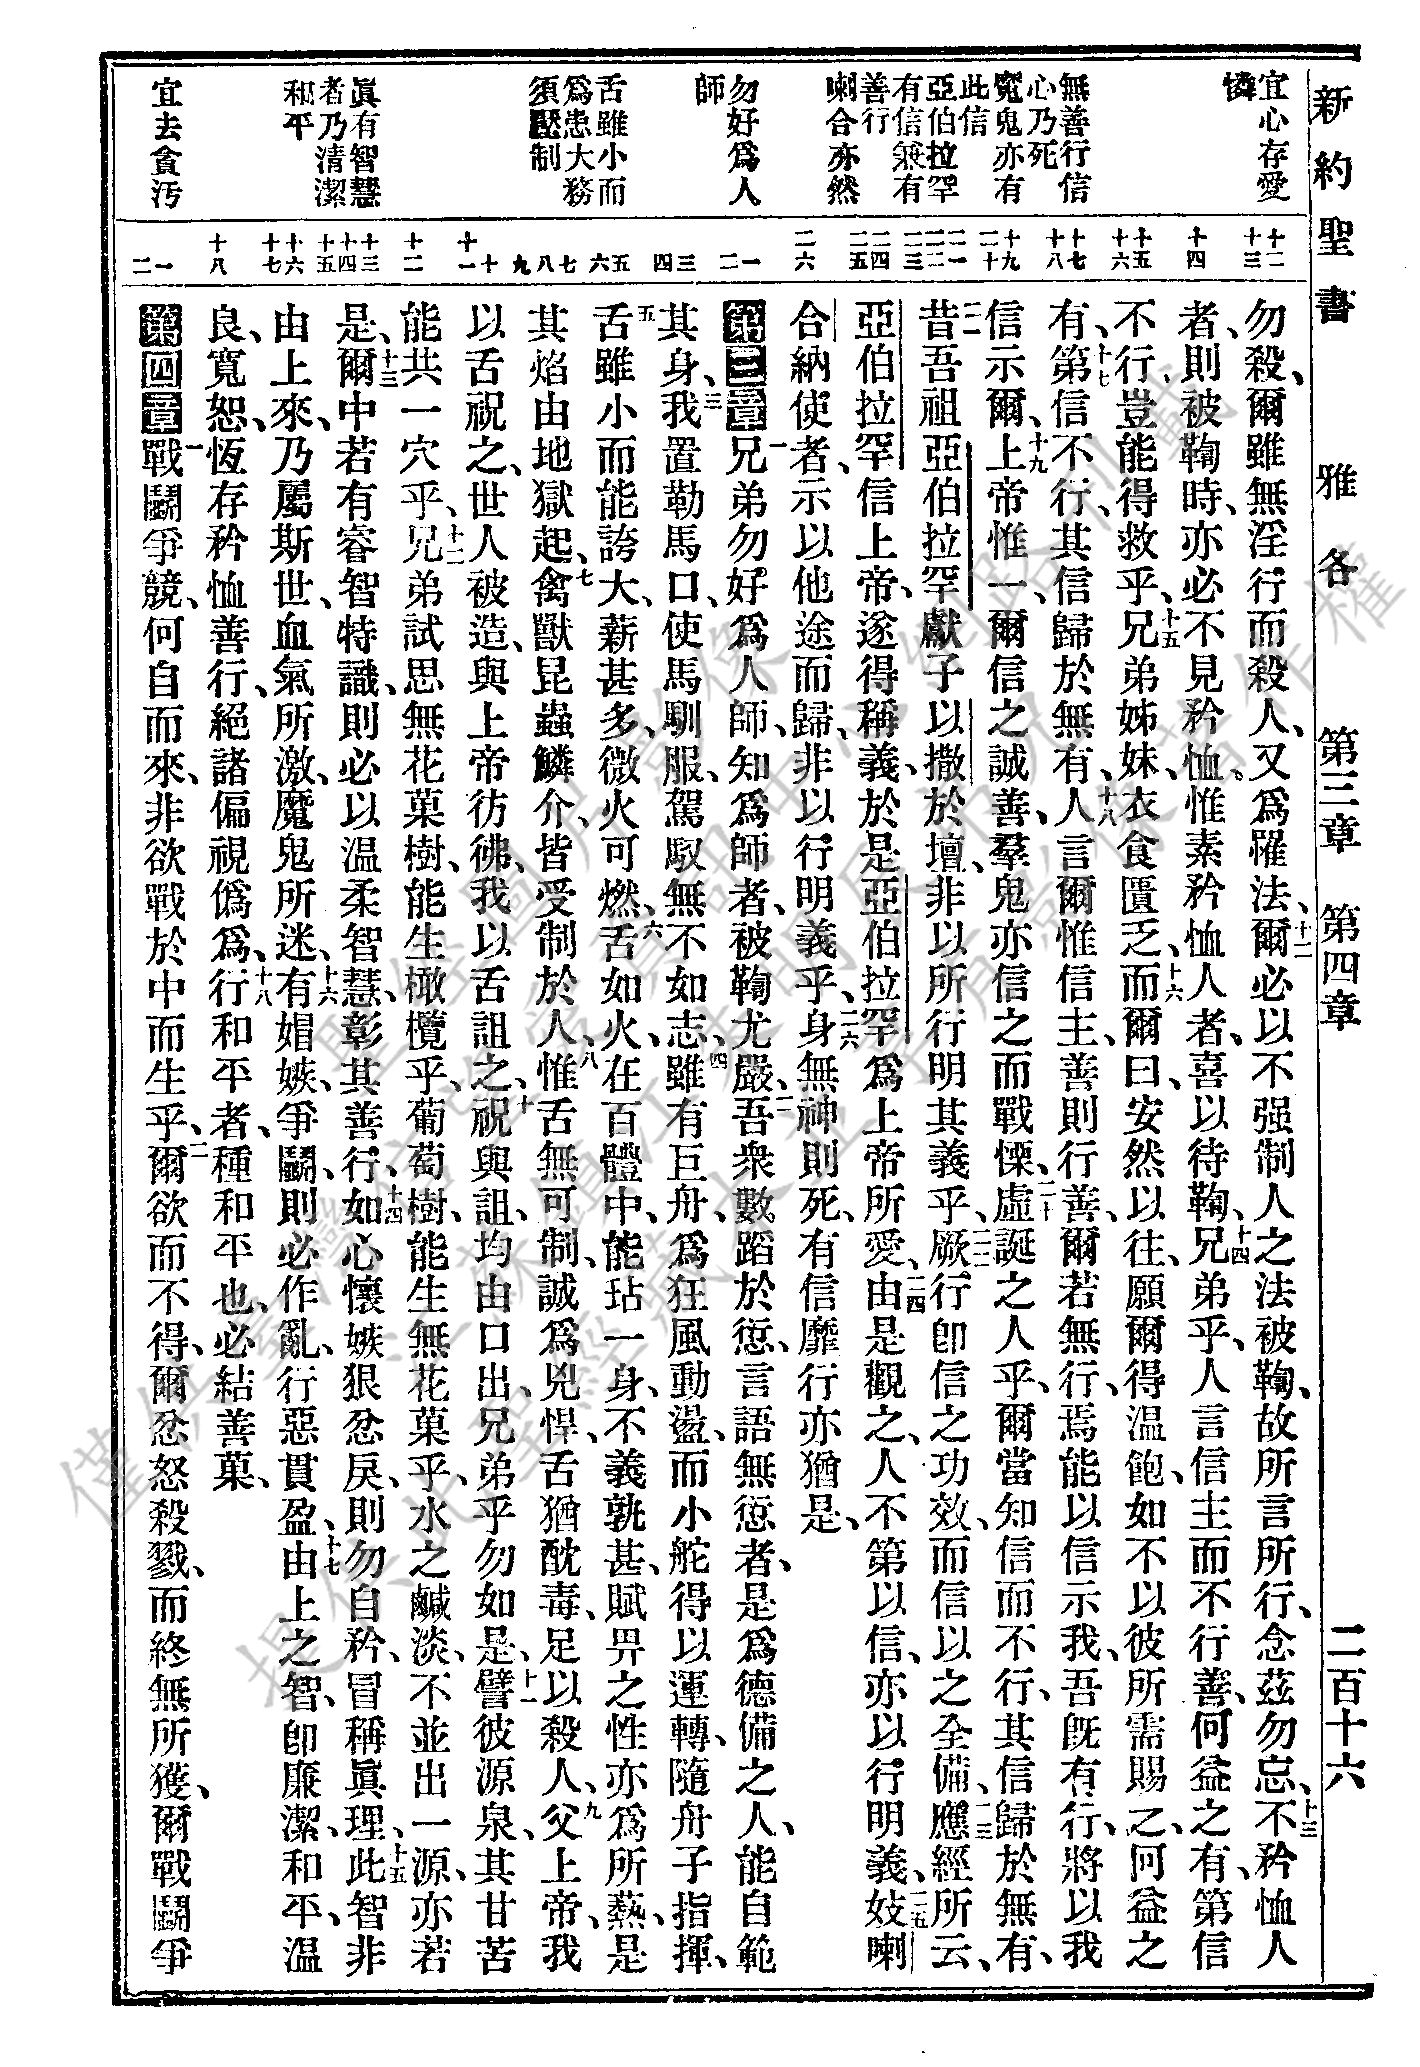 新約聖書 雅各 第三章 第四章 二百十六
宜心存愛
憐
無善行信
心乃死
魔鬼亦有
此信
亞伯拉罕
有信兼有
善行
喇合亦然
勿好爲人
師
舌雖小而
爲患大務
須壓制
眞有智慧
者乃清潔
和平
宜去貪污
十二
十三
十四
十五
十六
十七
十八
十九
二十
二一
二二
二三
二四
二五
二六
一
二
三
四
五
六
七
八
九
十
十一
十二
十三
十四
十五
十六
十七
十八
一
二
勿殺、爾雖無淫行而殺人、又爲罹法、十二爾必以不强制人之法被鞫、故所言所行、念茲勿忘、十三不矜恤人
者、則被鞫時、亦必不見矜恤、惟素矜恤人者、喜以待鞫、十四兄弟乎、人言信主而不行善、何益之有、第信
不行、豈能得救乎、十五兄弟姊妹、衣食匱乏、十六而爾曰、安然以往、願爾得温飽、如不以彼所需賜之、何益之
有、十七第信不行、其信歸於無有、十八人言爾惟信主、善則行善、爾若無行、焉能以信示我、吾旣有行、將以我
信示爾、十九上帝惟一、爾信之誠善、羣鬼亦信之而戰慄、二十虛誕之人乎、爾當知信而不行、其信歸於無有、
二一昔吾祖亞伯拉罕獻子以撒於壇、非以所行明其義乎、二二厥行卽信之功效、而信以之全備、二三應經所云、
亞伯拉罕信上帝、遂得稱義、於是亞伯拉罕爲上帝所愛、二四由是觀之、人不第以信、亦以行明義、二五妓喇
合納使者、示以他途而歸、非以行明義乎、二六身無神則死、有信靡行亦猶是、
第三章一兄弟勿好爲人師、知爲師者、被鞫尤嚴、二吾衆數蹈於愆、言語無愆者、是爲德備之人、能自範
其身、三我置勒馬口、使馬馴服、駕馭無不如志、四雖有巨舟、爲狂風動盪、而小舵得以運轉、隨舟子指揮、
五舌雖小而能誇大、薪甚多、微火可燃、六舌如火、在百體中、能玷一身、不義孰甚、賦畀之性亦爲所爇、是
其焰由地獄起、七禽獸昆蟲鱗介、皆受制於人、八惟舌無可制、誠爲兇悍、舌猶酖毒、足以殺人、九父上帝、我
以舌祝之、世人被造、與上帝彷彿、我以舌詛之、十祝與詛、均由口出、兄弟乎勿如是、十一譬彼源泉、其甘苦
能共一穴乎、十二兄弟試思無花菓樹、能生橄欖乎、葡萄樹、能生無花菓乎、水之鹹淡、不並出一源、亦若
是、十三爾中若有睿智特識、則必以温柔智慧、彰其善行、十四如心懷嫉狠忿戾、則勿自矜、冒稱眞理、十五此智非
由上來、乃屬斯世、血氣所激、魔鬼所迷、十六有媢嫉爭鬭、則必作亂、行惡貫盈、十七由上之智、卽廉潔、和平、温
良、寬恕、恆存矜恤善行、絕諸偏視僞爲、十八行和平者、種和平也、必結善菓、
第四章一戰鬭爭競、何自而來、非欲戰於中而生乎、二爾欲而不得、爾忿怒殺戮、而終無所獲、爾戰鬭爭